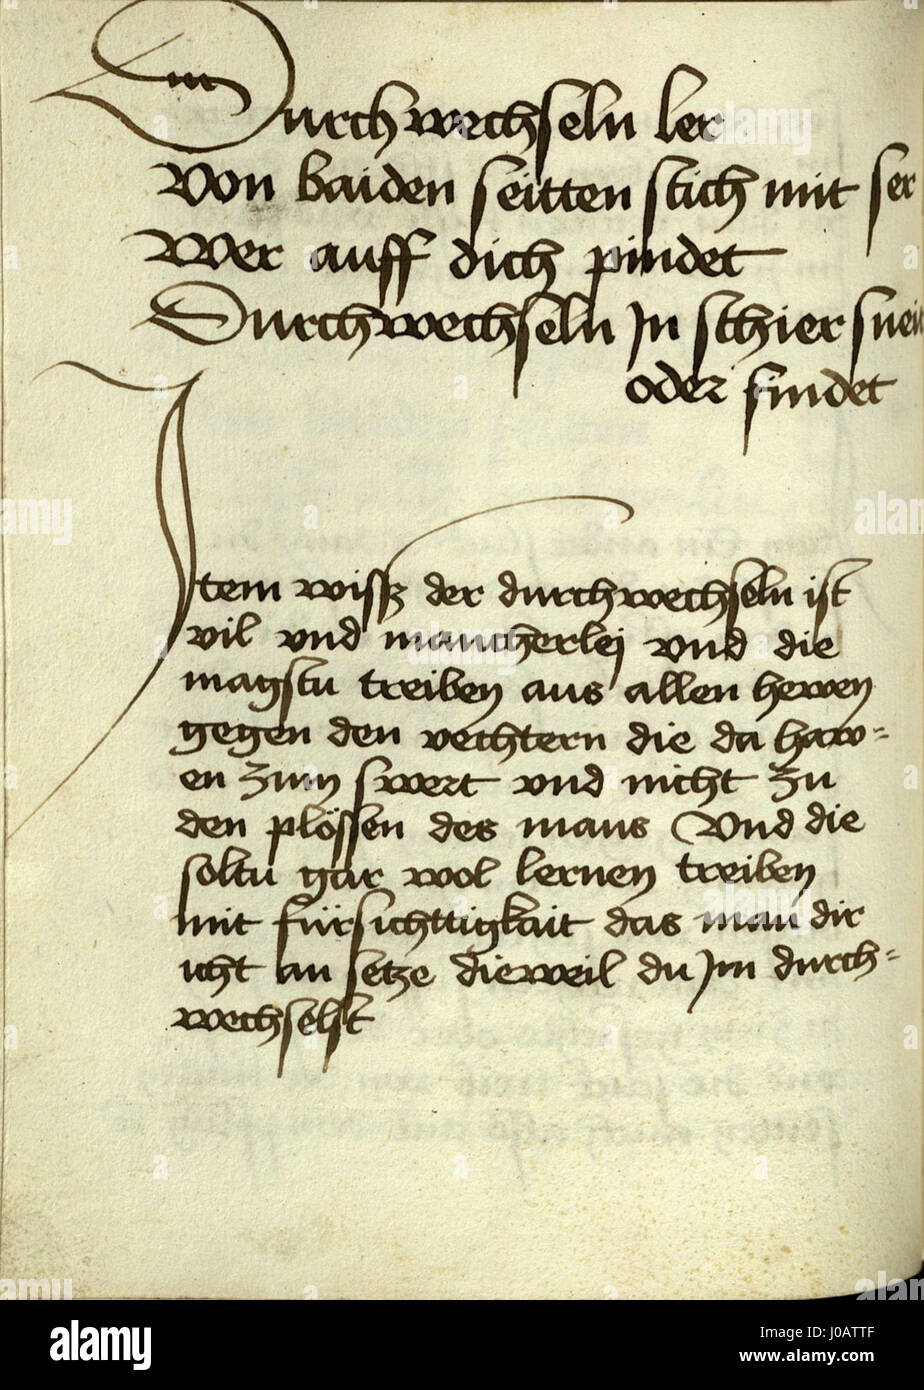 Durchwechseln ler
Von baiden seitten stich mit ser
Wer auff dich pindet
Durchwechseln Jn schier
oder findet
Item wissz der durchwechseln ist
vil vnd mancherleÿ vnd die
magstu treiben aus allen hewen
gegen den vechtern die da haw-
en zum swert vnd nicht zu
den plössen des mans Vnd die
soltu gar wol lernen treiben
mit fürsichttigkait das man dir
icht an setze dieweil du Jm durch-
wechselst
alamy
Image ID: J0ATTF
www.alamy.com